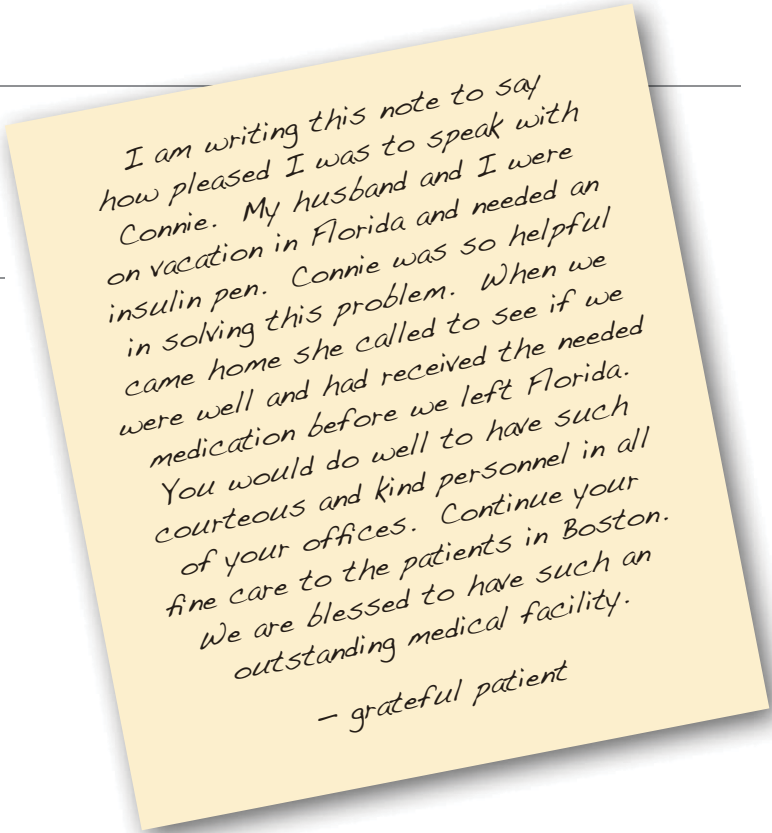 I am writing this note to say
how pleased I was to speak with
Connie. My husband and I were
on vacation in Florida and needed an
insulin pen. Connie was so helpful
in solving this problem. When we
came home she called to see if we
were well and had received the needed
medication before we left Florida.
You would do well to have such
courteous and kind personnel in all
of your offices. Continue your
fine care to the patients in Boston.
We are blessed to have such an
outstanding medical facility.
– grateful patient